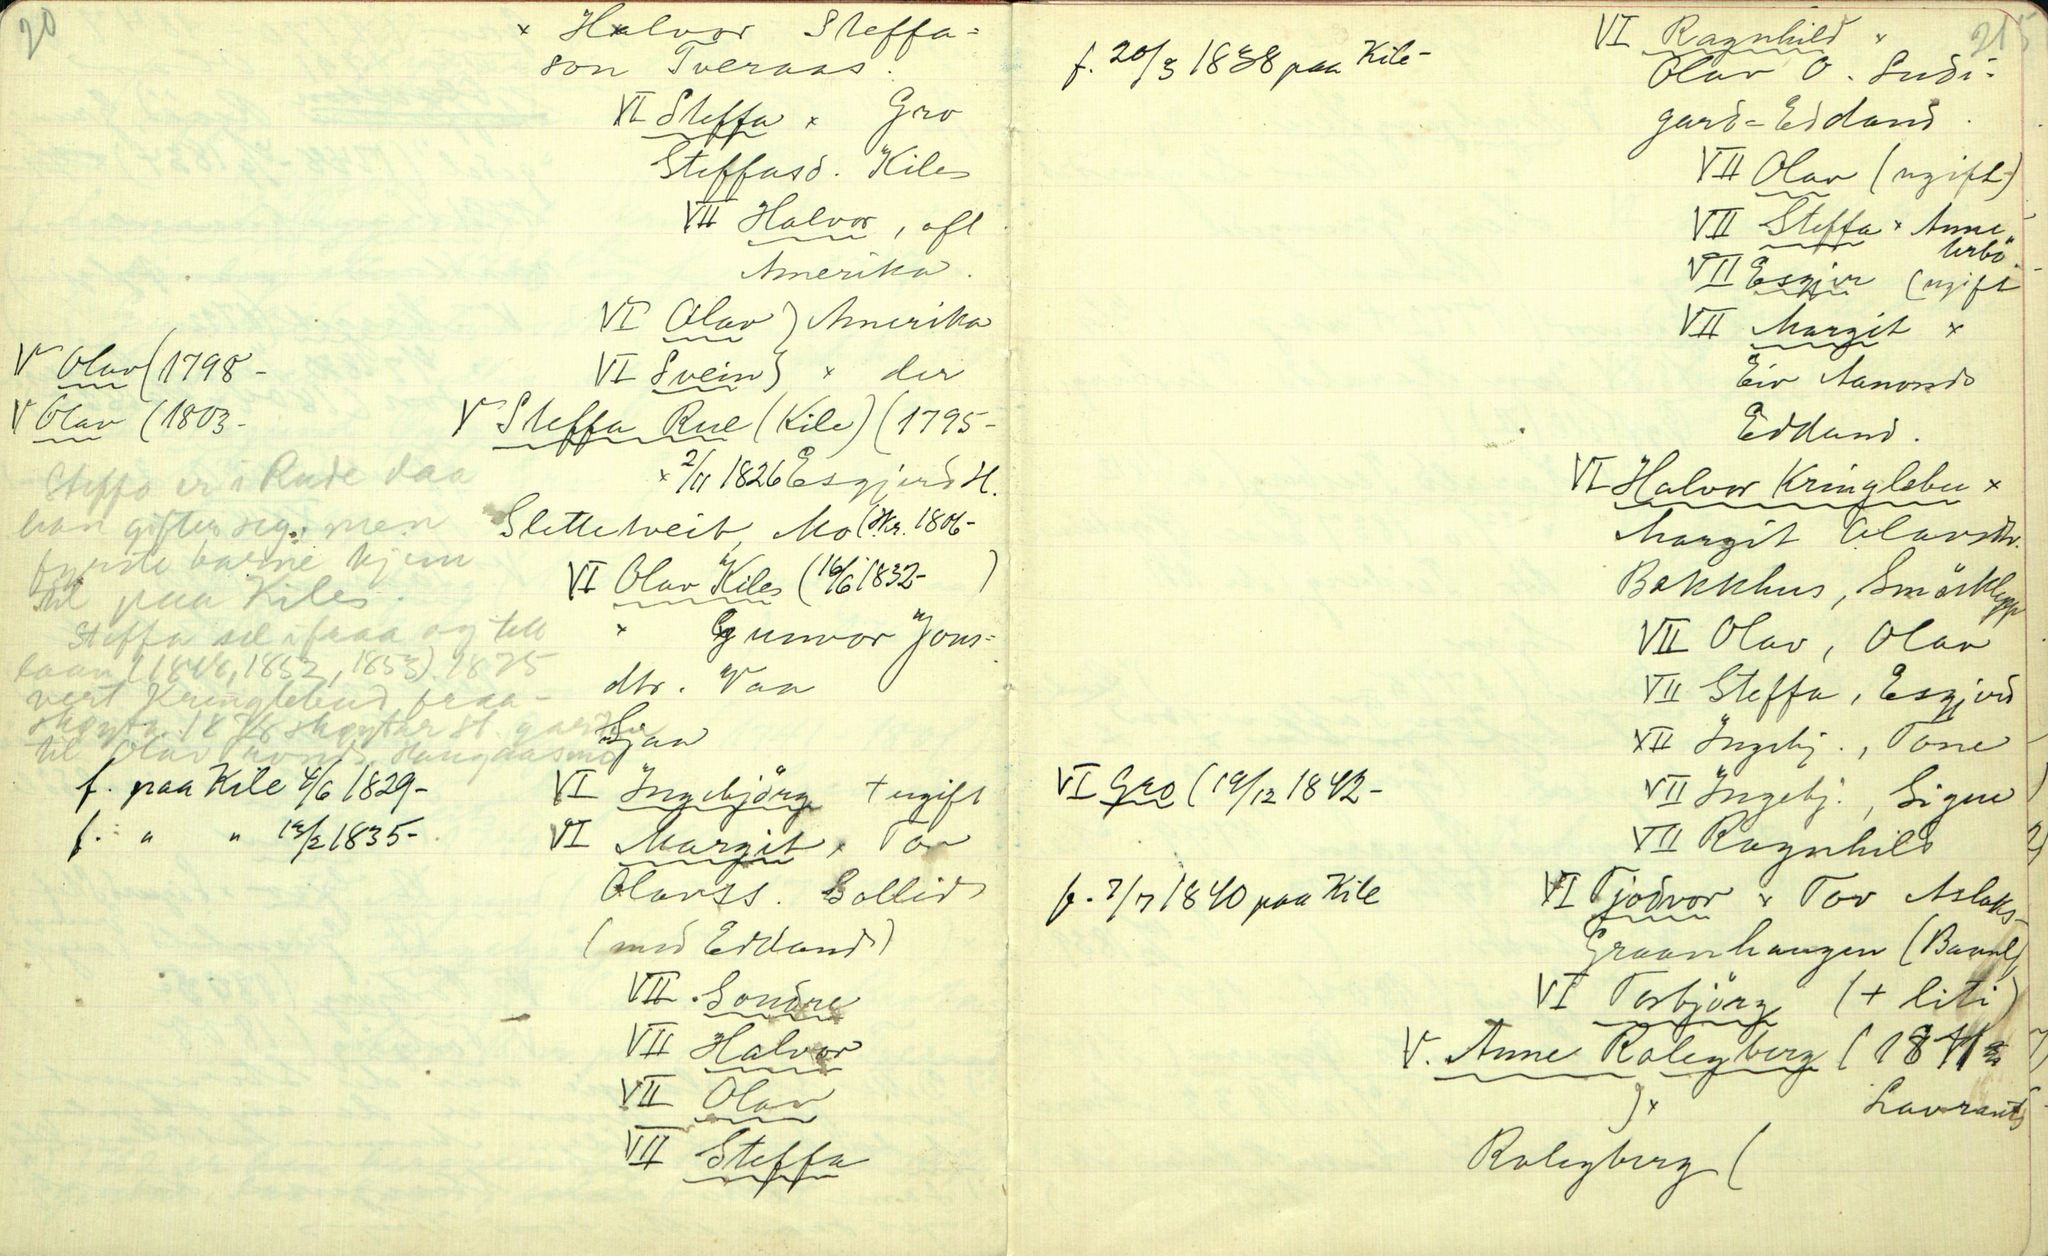 20
× Halvor Steffa=
son Tveraas.
VI Steffa × Gro
Steffasd. Kiles
VII Halvor, afl
Amerika.
VI Olav } Amerika
VI Svein } × der
V Olav (1798-
V Olav (1803-
V Steffa Rue (Kile) (1795-
× 2/11 1826 Esgjerd H.
Sletteweit, Mo (Kr. 1806-
Steffa er i Rude daa
han gifter seg, men
fyrste barne kjem
til paa Kiles.
VI Olav Kiles (16/6 1832- )
× Gunvor Jons=
dtr. Vaa
Steffa sel ifraa og tek
laan (1846, 1852, 1853) 1875
vert Kringlebud fraa-
til Olav
f. paa Kile 4/6 1829-
VI Ingebjörg + ugift
f. " " 13/2 1835-
VI Margit × Tov
Olavss. Bollid
(med Eddand)
VII Sondre
VII Halvor
VII Olav
VII Steffa
215
f. 20/3 1838 paa Kile-
VI Ragnhild ×
Olav O. Sudi=
gard=Eddand.
VII Olav (ugift)
VII Steffa × Anne
Urbö.
VII Esgjer (ugift
VII Margit ×
Eiv Aanonds
Eddand.
VI Halvor Kringlebu ×
Margit Olavsdtr.
Bakkhus, Smörklepp
VII Olav, Olav
VII Steffa, Esgjerd
VII Ingebj., Tone
VI Gro (19/12 1842-
VII Ingebj., Signe
VII Ragnhild
f. 7/7 1840 paa Kile
VI Tjodvor × Tov Aslaks-
Graanhaugen (Bamle)
VI Torbjörg (+ liti)
V. Anne Roleigberg (18
}× Lavrants
Roleigberg (